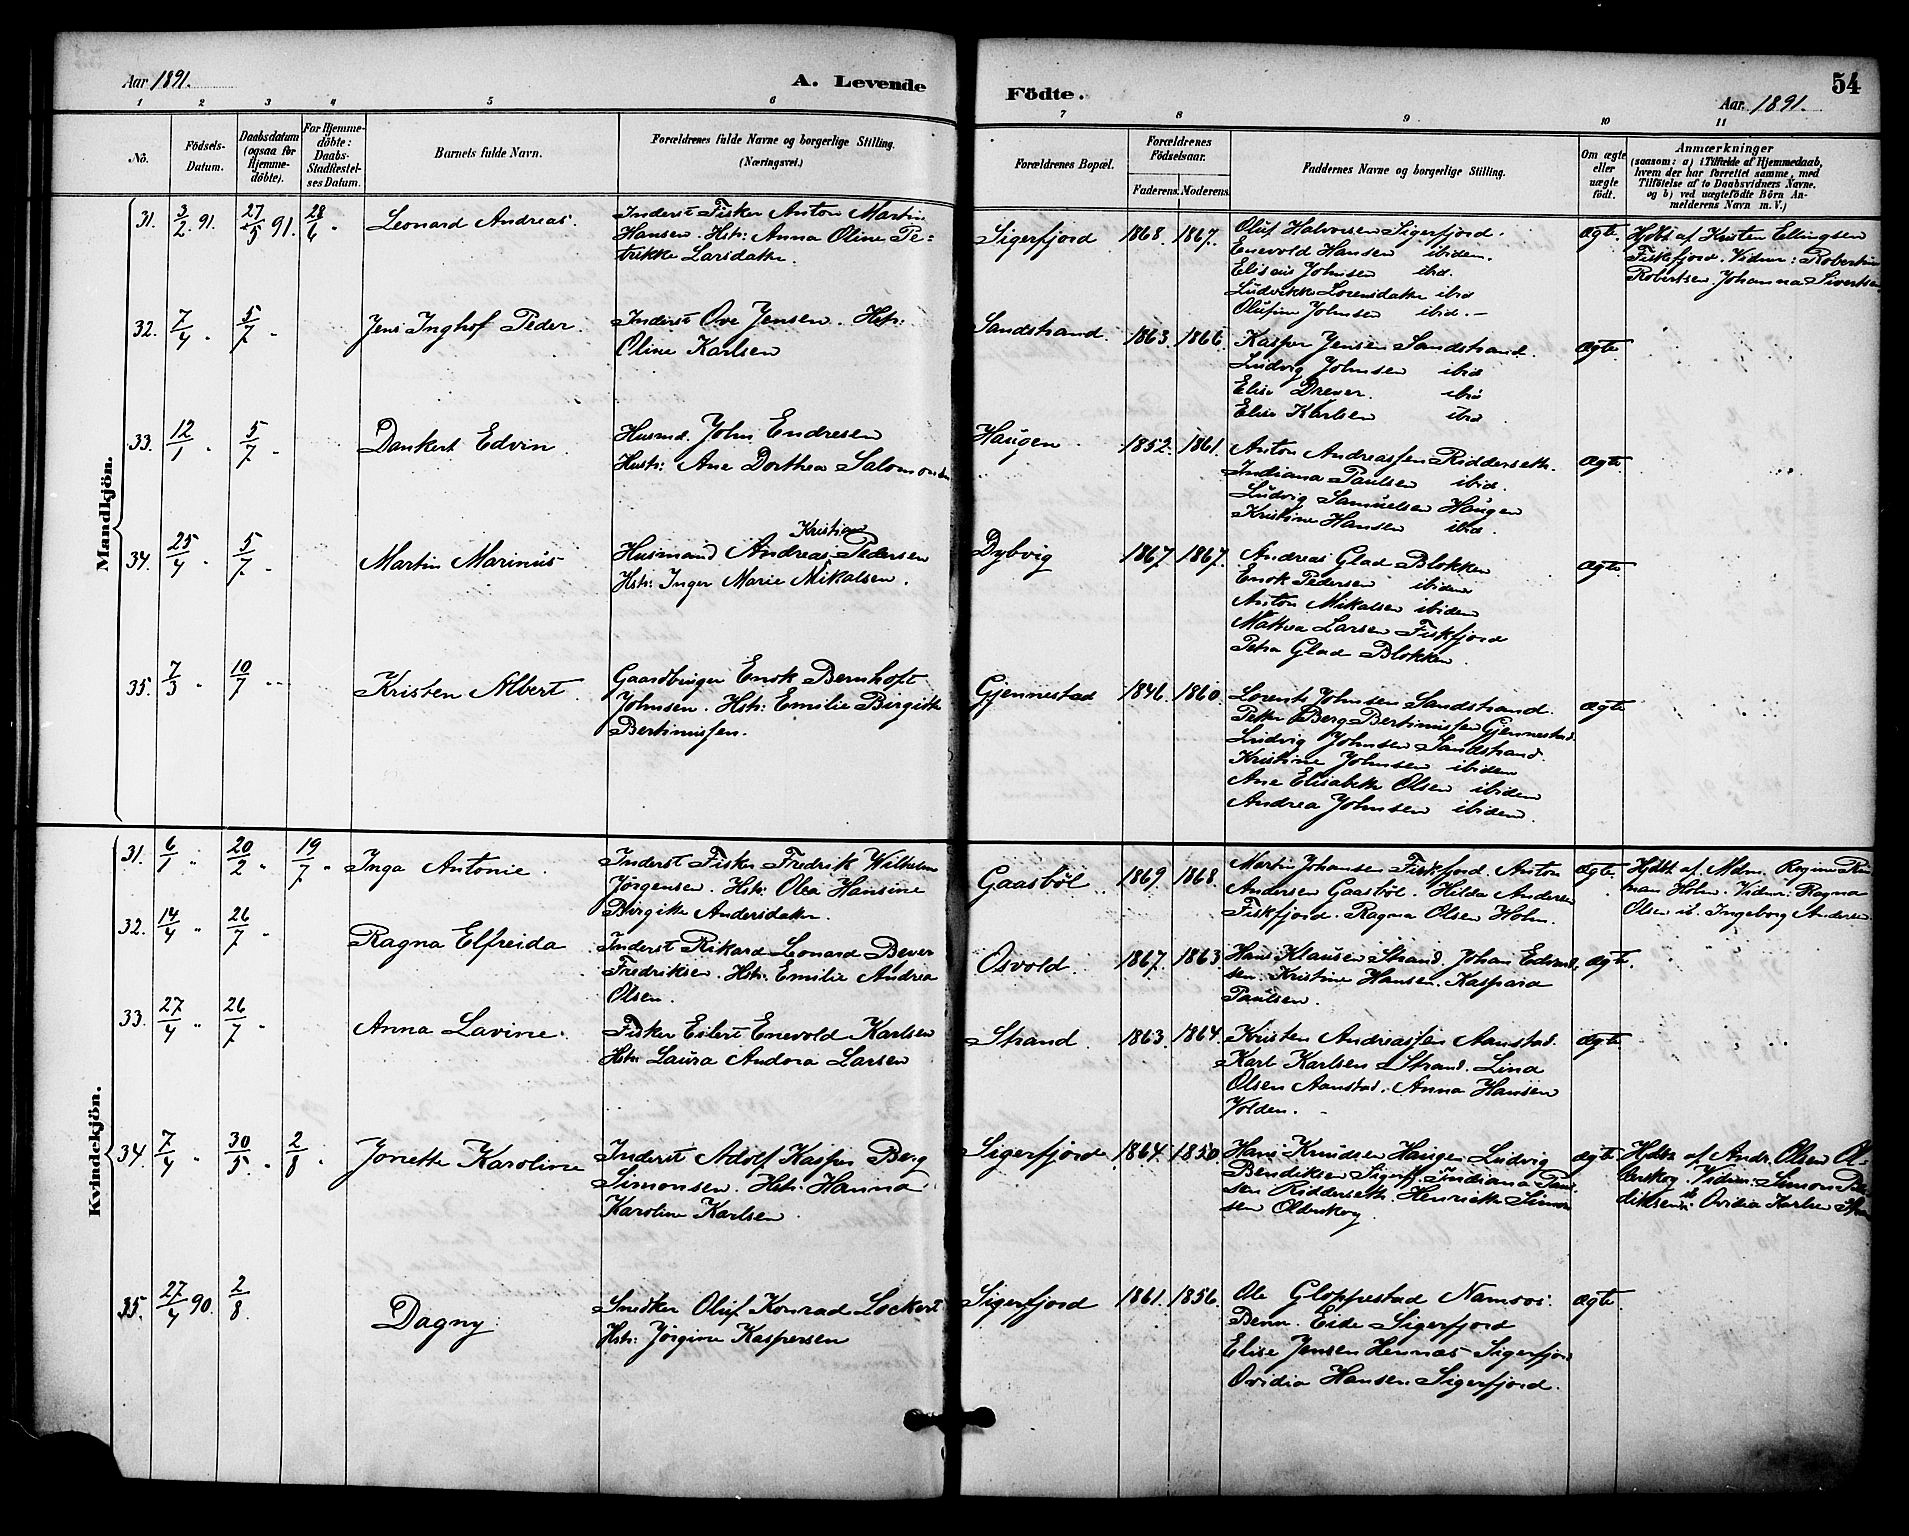 Aar 1891.
A. Levende
Födte.
54
Aar 1891.
1 2 3 4 5 6 7 8 9 10 11
No.
Födsels-Datum.
Daabsdatum (ogsaa for Hjemme-döbte).
For Hjemme-döbte: Daabs-Stadfæstelses Datum.
Barnets fulde Navn.
Forældrenes fulde Navne og borgerlige Stilling.
(Næringsvei.)
Forældrenes Bopæl.
Forældrenes Födselsaar.
Faderens. Moderens.
Faddernes Navne og borgerlige Stilling.
Om ægte eller uægte födt.
Anmærkninger
(saasom: a) i Tilfælde af Hjemmedaab,
hvem der har forrettet samme, med
Tilföielse af to Daabsvidners Navne.
og b) ved uægtefödte Börn An-
melderens Navn m. V.)
Mandkjön.
31. 3/2 91. 27/5 91. 28/6 "
Leonard Andreas.
Inderst Fisker Anton Martin
Hansen. Hstr: Anna Oline Pe-
trikke Larsdatter.
Sigerfjord 1868. 1867.
Oluf Halvorsen Sigerfjord.
Enevold Hansen ibidem.
Elisais Johnsen ibd.
Ludvikke Lorensdatter ibd
Olufine Johnsen ibid. —
ægte.
Hjdbt af Kristen Ellingsen
Fiskfjord. Vidner: Robertine
Robertsen. Johanna Sivertsen
32. 7/4 " 5/7 "
Jens Inghof Peder.
Inderst Ove Jensen. Hstr:
Oline Karlsen
Sandstrand. 1863. 1866.
Kasper Jensen Sandstrand.
Ludvig Johnsen ibid
Elise Drever. ibd
Elise Karlsen ibd.
ægte
33. 12/1 " 5/7 "
Dankert Edvin.
Husmd. John Endresen
Hustr: Ane Dorthea Salomonsen
Haugen. 1852. 1861.
Anton Andreassen Ridderseth.
Indiana Paulsen ibid.
Ludvig Samuelsen Haugen
Kristine Hansen ibd.
ægte.
34. 25/4 " 5/7 "
Martin Marinus
Kristian
Husmand Andreas Pedersen
Hstr: Inger Marie Mikalsen.
Dybvig 1867 1867.
Andreas Glad Blokken
Enok Pedersen ibidem
Anton Mikalsen ibidem
Mathea Larsen Fiskfjord
Petra Glad Blokken.
ægte.
35. 7/3 " 10/7 "
Kristen Albert.
Gaardbruger Enok Bernhoft
Johnsen. Hstr: Emilie Birgitte
Bertinussen.
Gjennestad 1846. 1860.
Lorents Johnsen Sandstrand.
Petter Berg Bertinussen Gjennestad.
Ludvig Johnsen Sandstrand.
Kristine Johnsen ibidem
Ane Elisabeth Olsen ibidem
Andrea Johnsen ibidem.
ægte
Kvindekjön.
31. 6/1 " 20/2 " 19/7 "
Inga Antonie.
Inderst Fisker Fredrik Wilhelm
Jörgensen. Hstr: Olea Hansine
Birgitte Andersdatter.
Gaasböl. 1869. 1868.
Martin Johansen Fiskfjord. Anton
Andersen Gaasböl. Hilda Andersen
Fiskfjord. Ragna Olsen Holm.
ægte.
Hjdbt. af Mdm. Regine
Holm. Vidner: Ragna
Olsen ib. Ingeborg Andersen
32. 14/4 " 26/7 "
Ragna Elfreida
Inderst Rikard Leonard Bever
Fredriksen. Hstr: Emilie Andrea
Olsen.
Osvold. 1867. 1863.
Hans Klausen Strand. Johan Edvard-
sen. Kristine Hansen. Kaspara
Paulsen.
ægte.
33. 27/4 " 26/7 "
Anna Lavine.
Fisker Eilert Enevold Karlsen
Hstr: Laura Andora Larsen
Strand. 1863. 1864.
Kristen Andreassen Aanstad.
Karl Karlsen Strand. Lina
Olsen Aanstad. Anna Hansen
Volden. —
ægte
34. 7/4 " 30/5 " 2/8 "
Jonette Karoline
Inderst Adolf Kasper Berg
Simonsen. Hstr: Hanna
Karoline Karlsen.
Sigerfjord 1864. 1850.
Hans Knudsen Haugen. Ludvig
Bendiksen Sigerf. Indiana Paul-
sen Ridderseth. Henriette Simon
sen Olderskog.
ægte
Hjdbt. af Andr. Olsen Ol-
derskog. Vidner: Simon
diktsen ib. Ovidia Karlsen
35. 27/4 90. 2/8
Dagny.
Snedker Oluf Konrad Lockert
Hstr: Jörgine Kaspersen
Sigerfjord 1861. 1856.
Ole Gloppestad Namsos.
Benn. Eide Sigerfjord
Elise Jensen Hennæs Sigerfjord
Ovidia Hansen Sigerfjord.
ægte